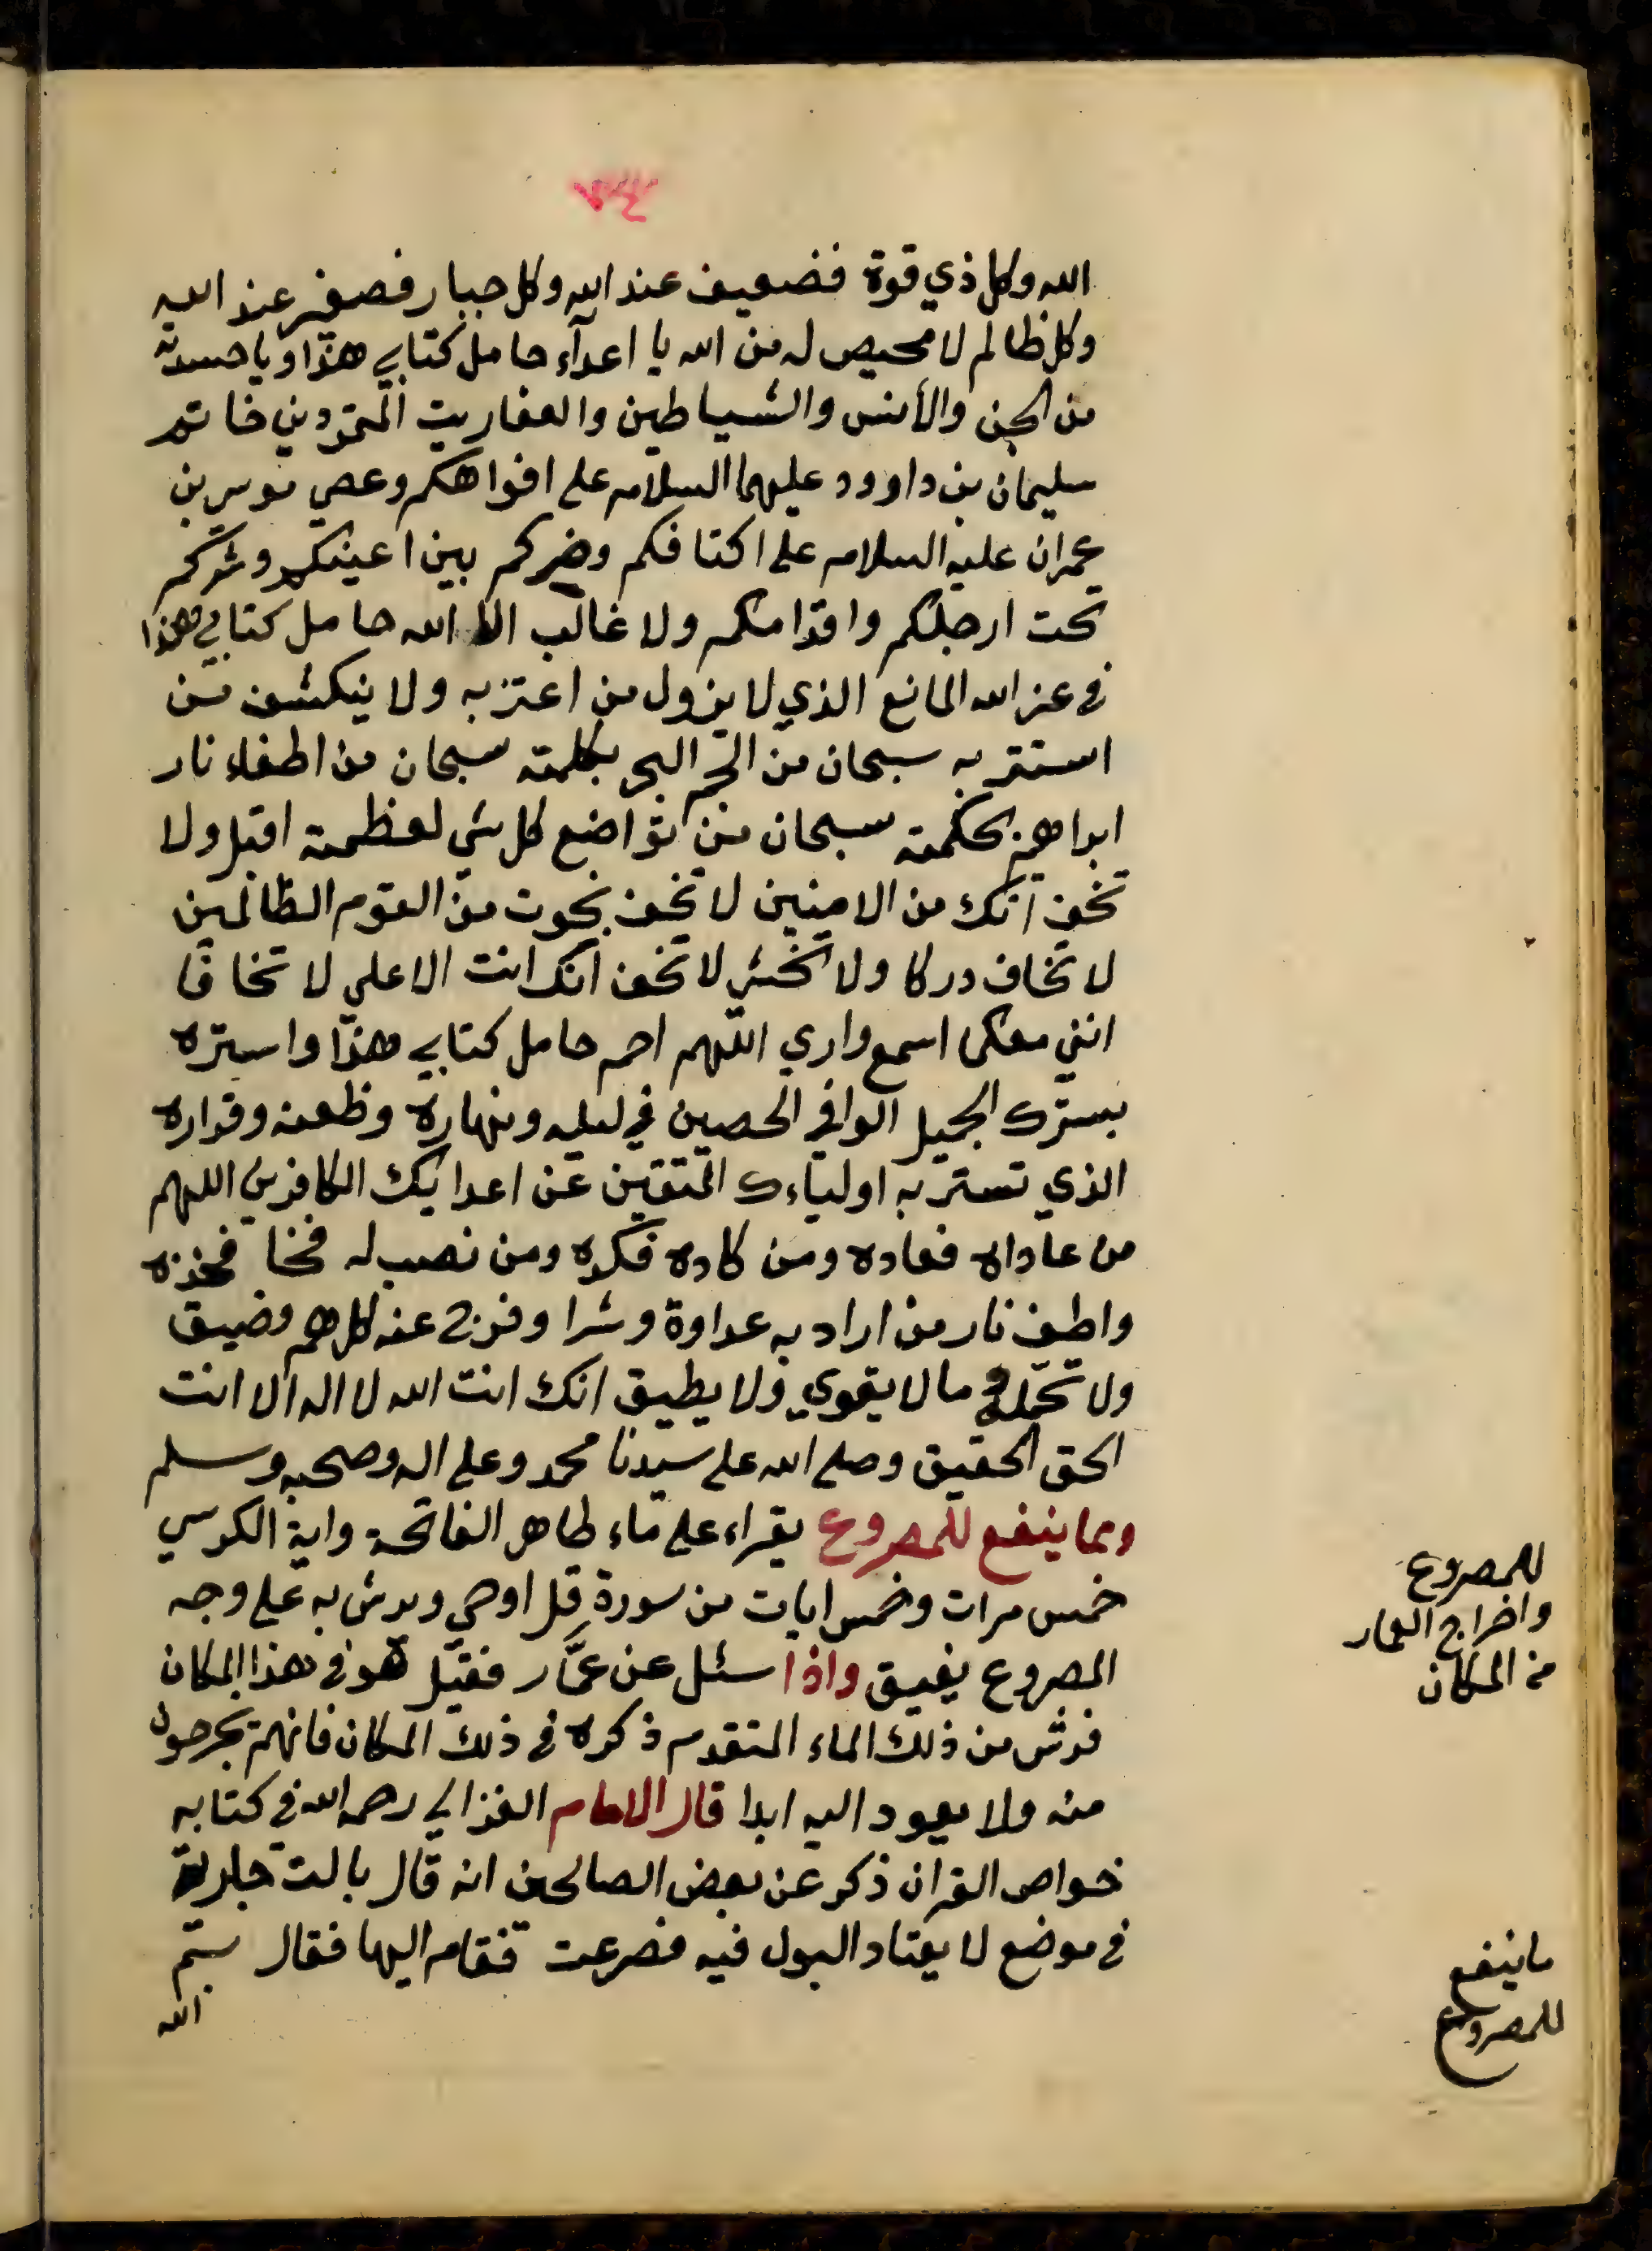 الله وكل ذي قوة فضعيف عند الله وكل جبار فصغير عند الله
وكل ظالم لا محيص له من الله يا اعدآء حامل كتابي هذا ويا حسدته
من الجن والأنس والشياطين والعفاريت المتمردين خاتم
سليمان بن داوود عليهما السلام على افواهكم وعصي موسى بن
عمران عليه السلام على اكتافكم وضركم بين اعينكم وشركم
تحت ارجلكم واقدامكم ولا غالب الا الله حامل كتابي هذا
في عز الله المانع الذي لا يزول من اعتز به ولا ينكشف من
استتر به سبحان من الجم البحر بكلمته سبحان من اطفاء نار
ابراهيم بحكمته سبحان من تواضع كل شي لعظمته اقبل ولا
تخف انك من الامنين لا تخف نجوت من القوم الظالمين
لا تخاف دركا ولا تخشى لا تخف انك انت الاعلى لا تخافا
انني معكما اسمع واري اللهم احم حامل كتابي هذا واستره
بسترك الجميل الوافي الحصين في ليله ونهاره وظعنه وقراره
الذي تستر به اولياءك المتقين عن اعدايك الكافرين اللهم
من عاداه فعاده ومن كاده فكده ومن نصب له فخا فخذه
واطف نار من اراد به عداوة وشرا وفرج عنه كل هم وضيق
ولا تحمله ما لا يقوي ولا يطيق انك انت الله لا اله الا انت
الحق الحقيق وصلى الله على سيدنا محمد وعلى اله وصحبه وسلم
ومما ينفع للمصروع يقراء على ماء طاهر الفاتحة واية الكرسي
خمس مرات وخمس ايات من سورة قل اوحي ويرش به على وجه
المصروع يفيق واذا سئل عن عمَّار فقيل هو في هذا المكان
فرش من ذلك الماء المتقدم ذكره في ذلك المكان فانهم يخرجون
منه ولا يعود اليه ابدا قال الامام الغزالي رحمه الله في كتابه
خواص القران ذكر عن بعض الصالحين انه قال بالت جارية
في موضع لا يعتاد البول فيه فصرعت فقام اليها فقال بسم
الله
للمصروع
واخراج العمار
من المكان
ما ينفع
للمصروع